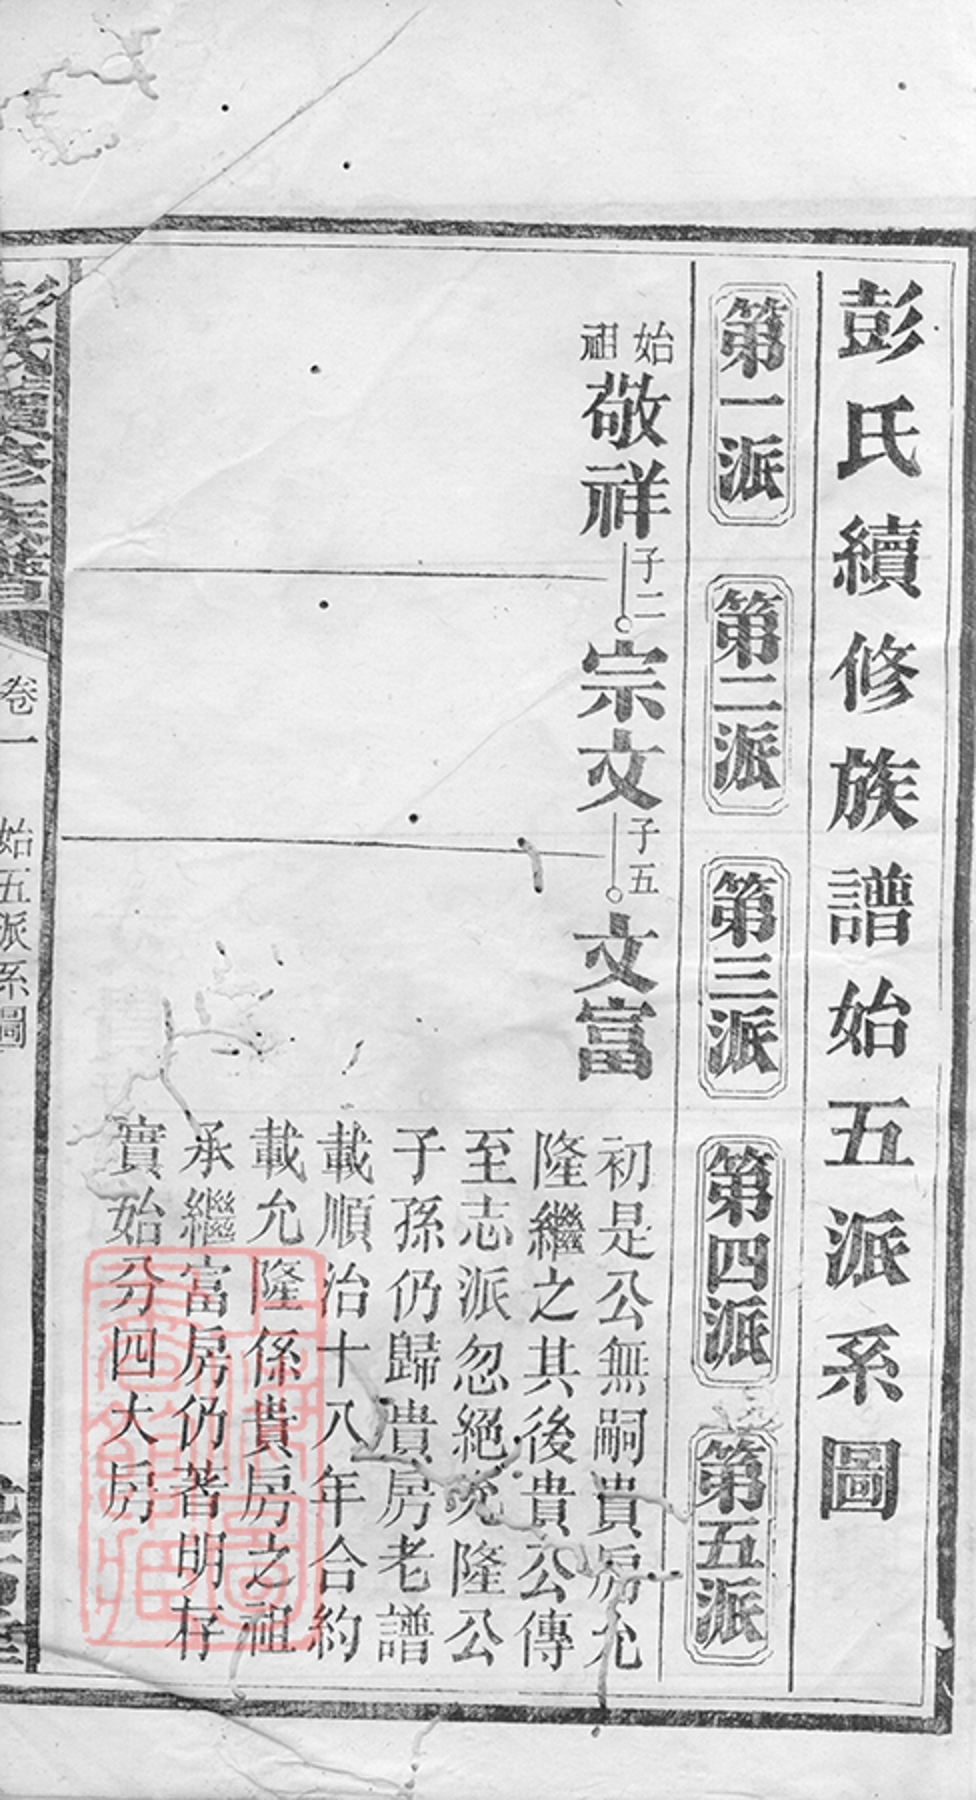 彭氏續修族譜始五派系圖
第一派
第二派
第三派
第四派
第五派
始祖
敬祥
子二
宗文
子五
文富
初是公無嗣貴房允
隆繼之其後貴公傳
至志派忽絕允隆公
子孫仍歸貴房老譜
載順治十八年合約
載允隆係貴房之祖
承繼富房仍著明存
實始分四大房
彭氏續修族譜
卷一
始五派系圖
一